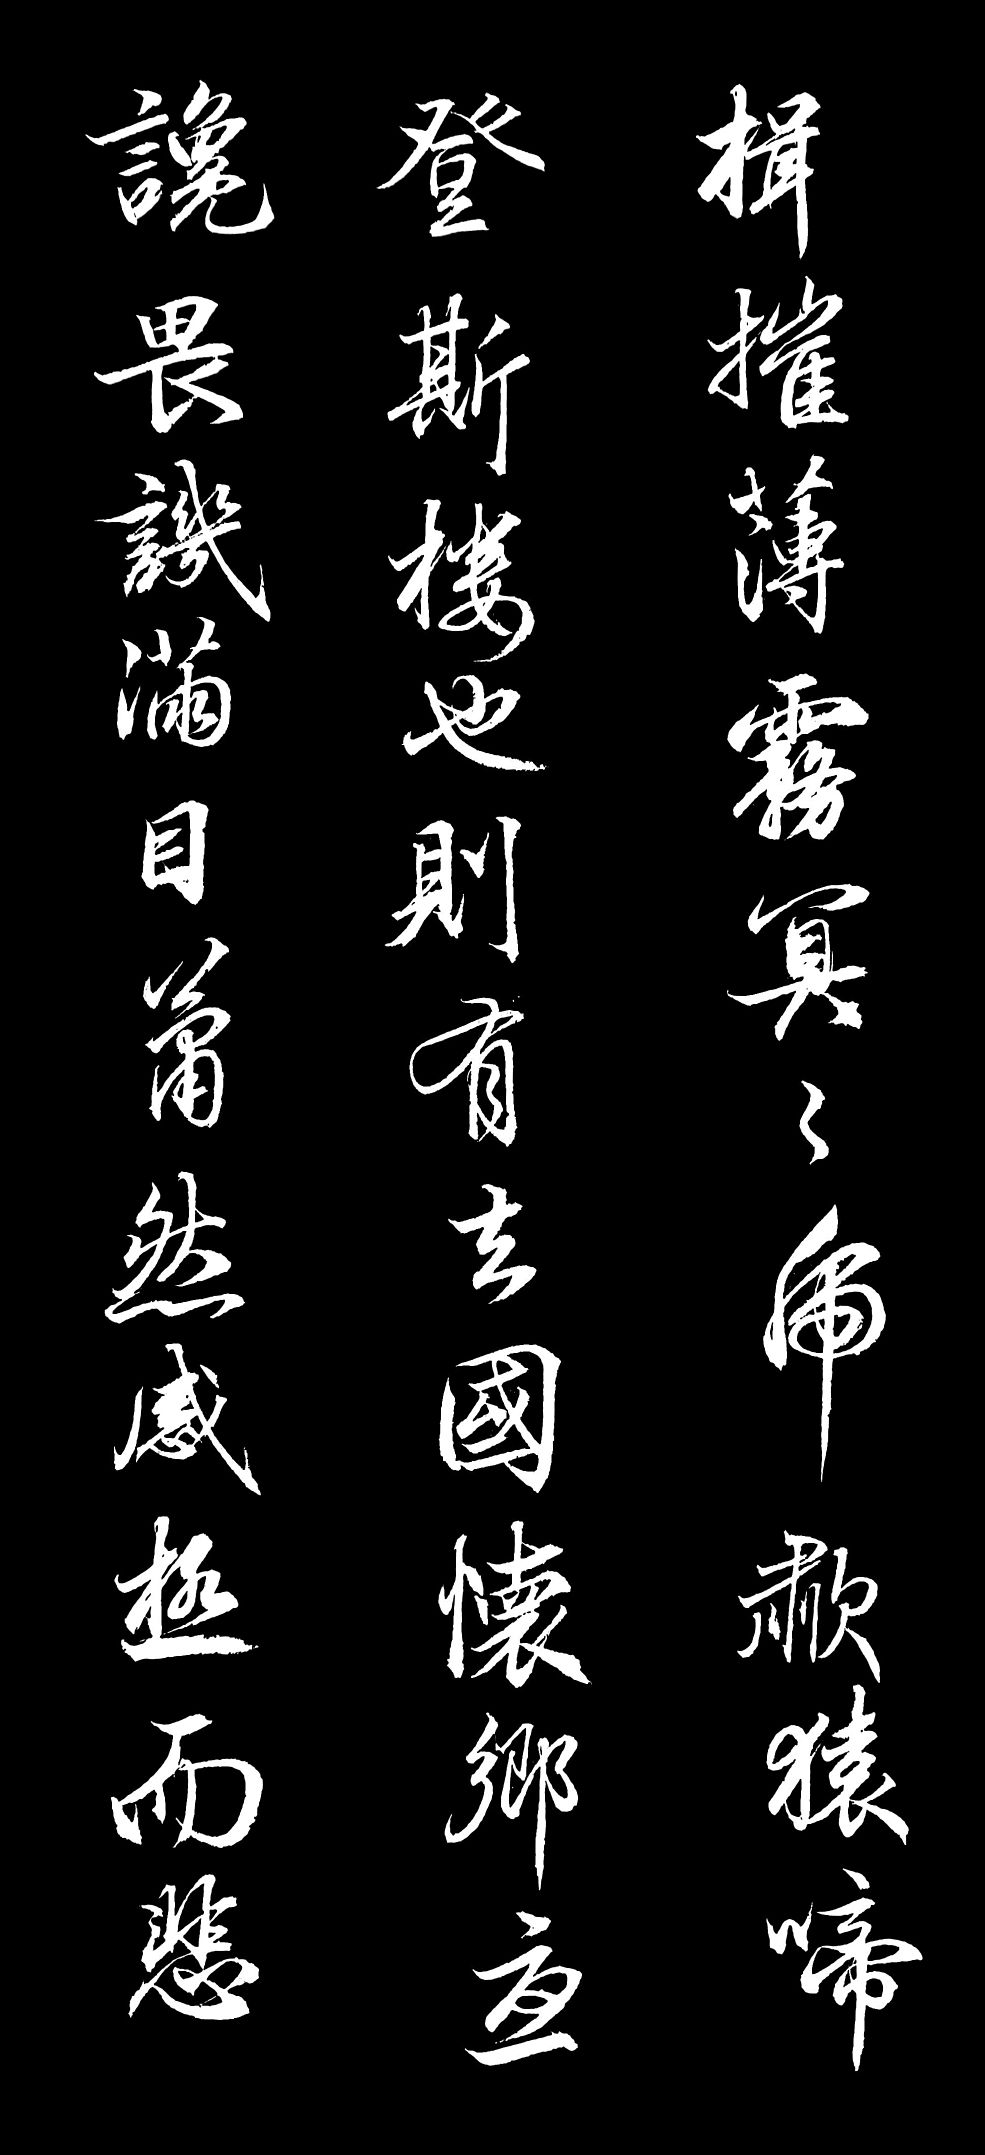 楫摧薄霧冥〻虎歗猿啼
登斯楼也則有去國懷鄉憂
讒畏譏滿目蕭然感極而悲